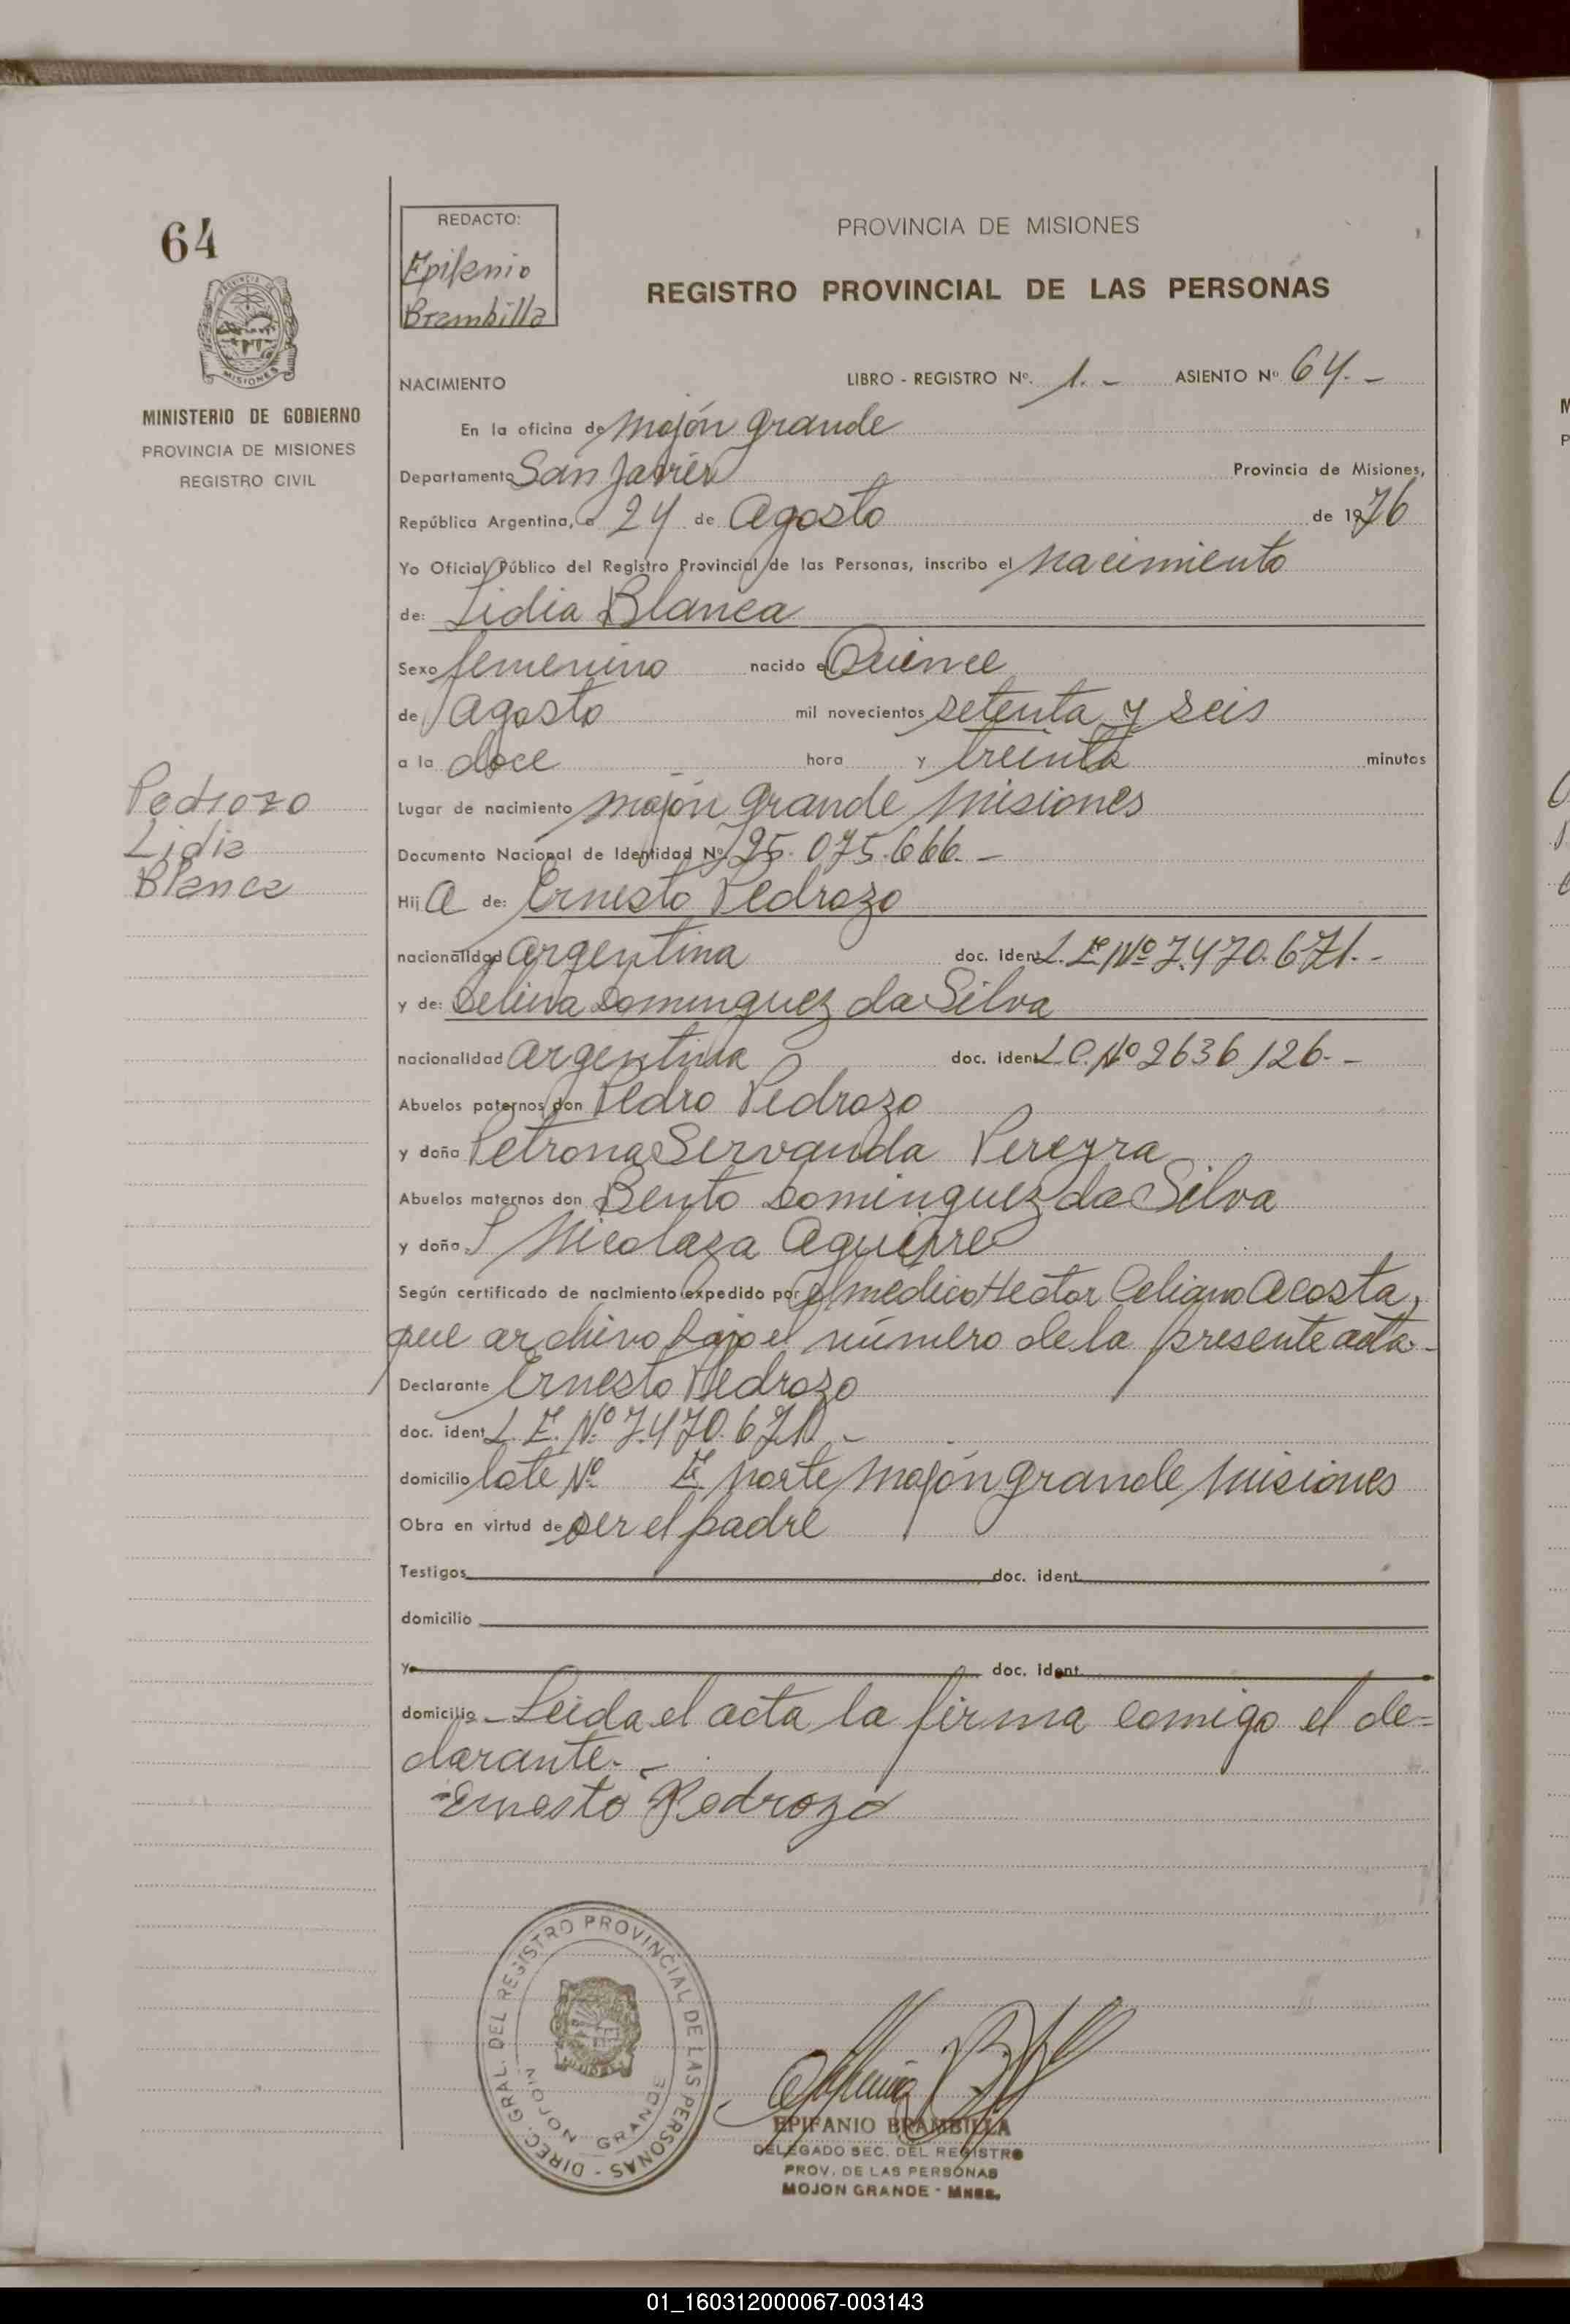 64
REDACTO:
Epifanio
Brambilla
PROVINCIA DE MISIONES
REGISTRO PROVINCIAL DE LAS PERSONAS
MINISTERIO DE GOBIERNO
PROVINCIA DE MISIONES
REGISTRO CIVIL
NACIMIENTO LIBRO - REGISTRO Nº. 1.- ASIENTO Nº 64.-
En la oficina de Mojón Grande
Departamento San Javier Provincia de Misiones,
República Argentina, a 24 de Agosto de 1976
Yo Oficial Público del Registro Provincial de las Personas, inscribo el nacimiento
de: Lidia Blanca
Sexo femenino nacido el Quince
de Agosto mil novecientos setenta y seis
a la doce hora y treinta minutos
Pedrozo
Lidia
Blanca
Lugar de nacimiento Mojón Grande Misiones
Documento Nacional de Identidad Nº 25.075.666.-
Hij a de: Ernesto Pedrozo
nacionalidad argentina doc. ident L.E. Nº 7.470.671.-
y de: Delina Dominguez da Silva
nacionalidad argentina doc. ident L.C. Nº 2636126.-
Abuelos paternos don Pedro Pedrozo
y doña Petrona Servanda Pereyra
Abuelos maternos don Bento Dominguez da Silva
y doña Nicolaza Aguirre
Según certificado de nacimiento expedido por el medico Hector Acosta,
que archivo bajo el número de la presente acta.-
Declarante Ernesto Pedrozo
doc. ident L.E. Nº 7.470.671.-
domicilio lote Nº norte Mojón Grande Misiones
Obra en virtud de ser el padre
Testigos doc. ident.
domicilio
y doc. ident.
domicilio - Leida el acta la firma comigo el de=
clarante.-
Ernesto Pedrozo
DIREC. GRAL. DEL REGISTRO PROVINCIAL DE LAS PERSONAS -
MOJON GRANDE
EPIFANIO BRAMBILLA
DELEGADO SEC. DEL REGISTRO
PROV. DE LAS PERSONAS
MOJON GRANDE - MNES.
01_160312000067-003143